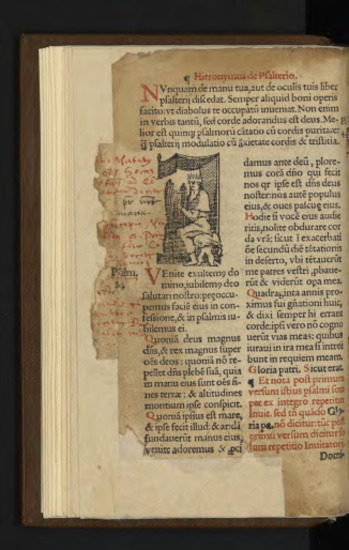 ¶ Hieronymus de Psalterio.
NVnquam de manu tua, aut de oculis tuis liber
psalterij discedat. Semper aliquid boni operis
facito: vt diabolus te occupatũ inueniat. Non enim
in verbis tantũ, sed corde adorandus est deus. Me-
lior est quinq; psalmorũ cũ puritate
psalterij modulatio cũ ãxietate cordis & tristitia.
Psalm.
VEnite exultemꝰ do
mino, iubilemꝰ deo
salutari nostro: preoccu-
pemus faciẽ eius in con-
fessione, & in psalmis iu-
bilemus ei.
Quoniã deus magnus
dñs, & rex magnus super
oẽs deos: quoniã nõ re-
pellet dñs plebẽ suã, quia
in manu eius sunt oẽs fi-
nes terræ: & altitudines
montium ipse conspicit.
Quoniã ipsius est mare,
& ipse fecit illud: & aridã
fundauerũt manus eius,
venite adoremus &
damus ante deũ, plore-
mus corã dño qui fecit
nos qr ipse est dñs deus
noster: nos autẽ populus
eius, & oues pascuę eius.
Hodie si vocẽ eius audie
ritis, nolite obdurare cor
da vrã: sicut ĩ exacerbati
õe secundũ diẽ tẽtationis
in deserto, vbi tẽtauerũt
me patres vestri, ꝓbaue-
rũt & viderũt opa mea.
Quadraginta annis pro-
ximus fui gñationi huic,
& dixi semper hi errant
corde: ipsi vero nõ cogno
uerũt vias meas: quibus
iuraui in ira mea si introi
bunt in requiem meam.
Gloria patri. Sicut erat.
¶ Et nota post primum
versum istius psalmi sem
per ex integro repetitur
Inuit. sed tñ quãdo Glo
ria pa. nõ dicitur: tũc post
primũ versum dicitur so
lum repetitio Inuitatorij